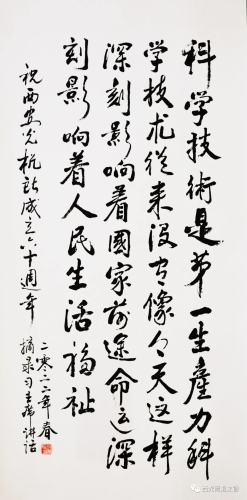 科学技術是第一生產力科
学技术從来没有像今天这样
深刻影响着國家前途命运深
刻影响着人民生活福祉
祝西安光机所成立六十週年
二零二二年春
摘录习主席讲话